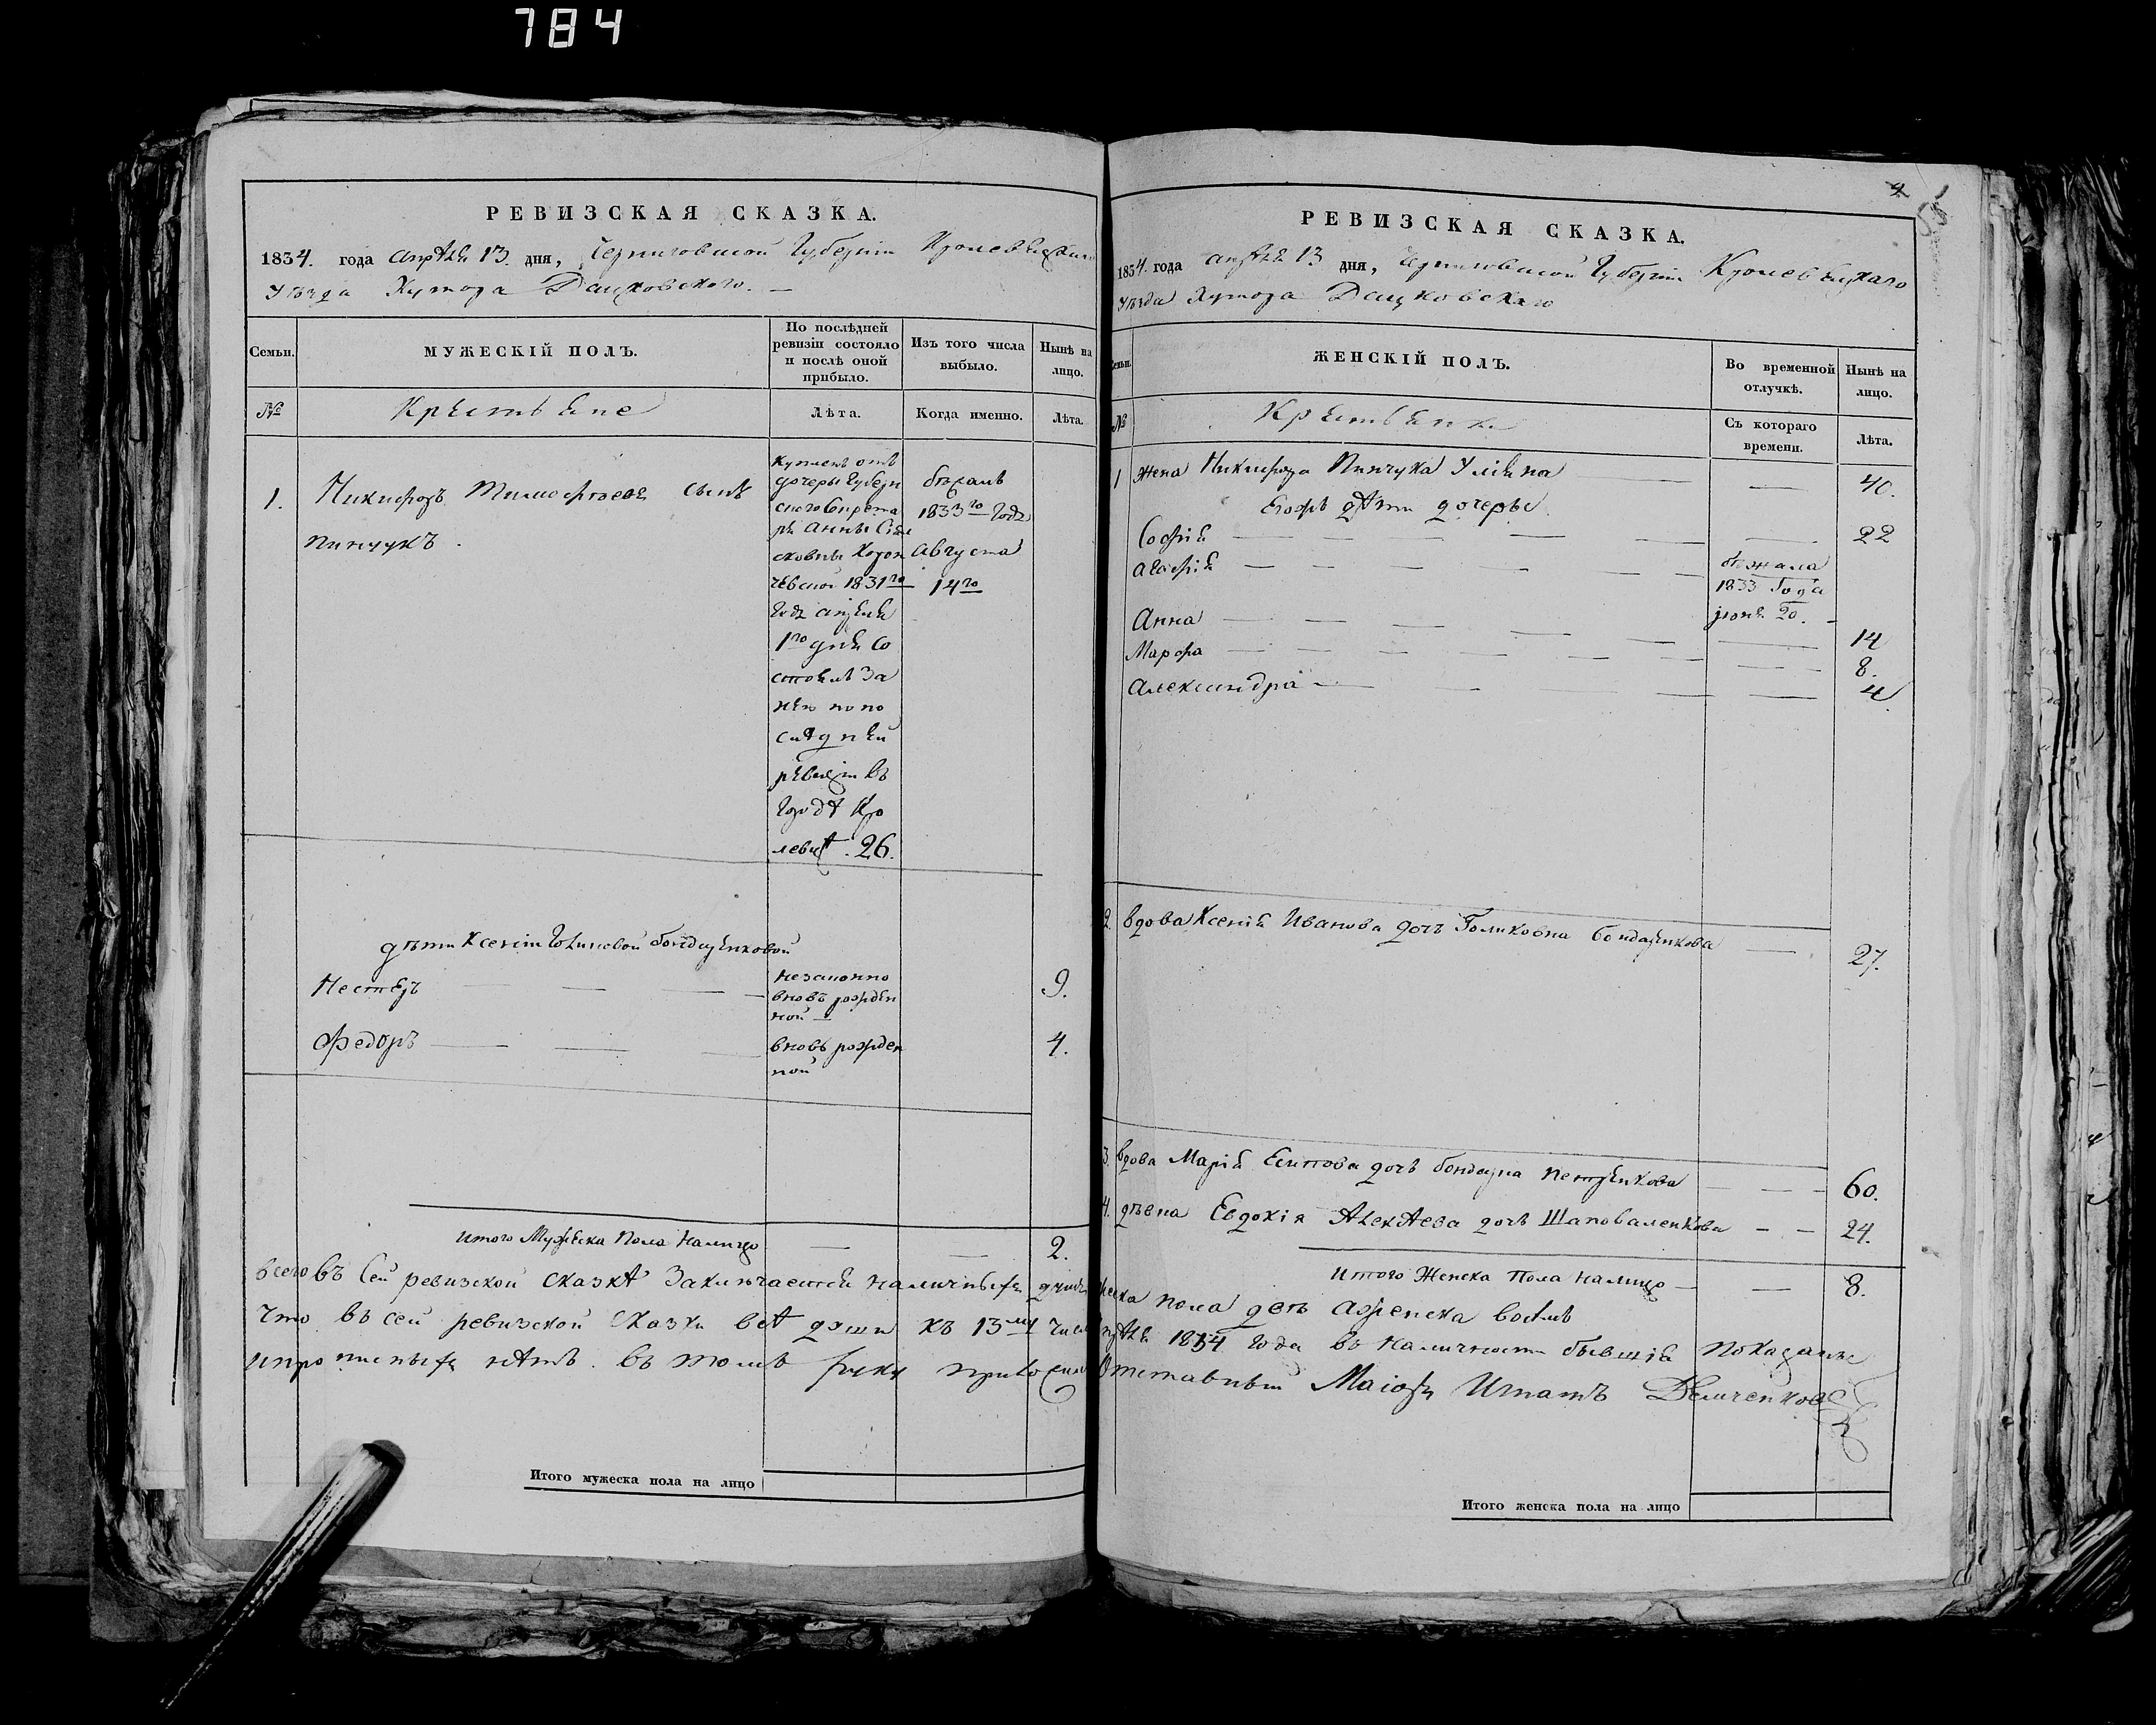 784
РЕВИЗСКАЯ СКАЗКА.
1834. года апрѣля 13. дня, Черниговской Губерніи Кролевецкаго
уѣзда Хутора Дацковского. —
Семьи.
МУЖЕСКІЙ ПОЛЪ.
По послѣдней
ревизіи состояло
и послѣ оной
прибыло.
Изъ того числа
выбыло.
Нынѣ на
лицо.
№
Крестьяне
Лѣта.
Когда именно.
Лѣта.
1.
Никифоръ Тимофѣевъ сынъ
Пинчукъ.
Купленъ отъ
дочери Губерн
ского Секрета
ря Анны
1831го
года апреля
1го дня со
стоялъ за
нею по по
слѣдней
ревизіи въ
городѣ Кро
левцѣ. 26.
бѣжалъ
1833го года
Августа
14го
дѣти Ксеніи Бондаренковой
Нестеръ
незаконно
вновь рожден
ной —
9.
Федоръ
вновь рожден
ной
4.
Итого Мужеска Пола налицо — — 2.
всего въ сей ревизской сказкѣ заключается наличныхъ душъ
что въ сей ревизской сказки всѣ души къ 13му числу
и прописныхъ нѣтъ. въ томъ руку приложилъ
Итого мужеска пола на лицо
РЕВИЗСКАЯ СКАЗКА.
1834. года апрѣля 13 дня, Черниговской Губерніи Кролевецкаго
уѣзда Хутора Дацковскаго
Семьи.
ЖЕНСКІЙ ПОЛЪ.
Во временной
отлучкѣ.
Нынѣ на
лицо.
№
Крестьянки
Съ котораго
времени.
Лѣта.
1 жена Никифора Пинчука Уліяна — 40.
Егожъ дѣти дочеры
Софія — 22
Агафія
бѣжала
1833 года
іюня 20.
Анна — 14
Марфа — 8.
Александра — 4
2. вдова Ксенія Иванова дочь Голиковна Бондаренкова — 27.
3. вдова Марія Есипова дочь Бондарна Петренкова — 60.
4. дѣвка Евдокія Алексѣева дочь Шаповаленкова — 24.
Итого Женска Пола налицо — 8.
мужеска пола два а женска восемь
апрѣля 1834 года въ наличности бывшія показаны
Отставный Маіоръ Игнатъ Величенковъ
Итого женска пола на лицо